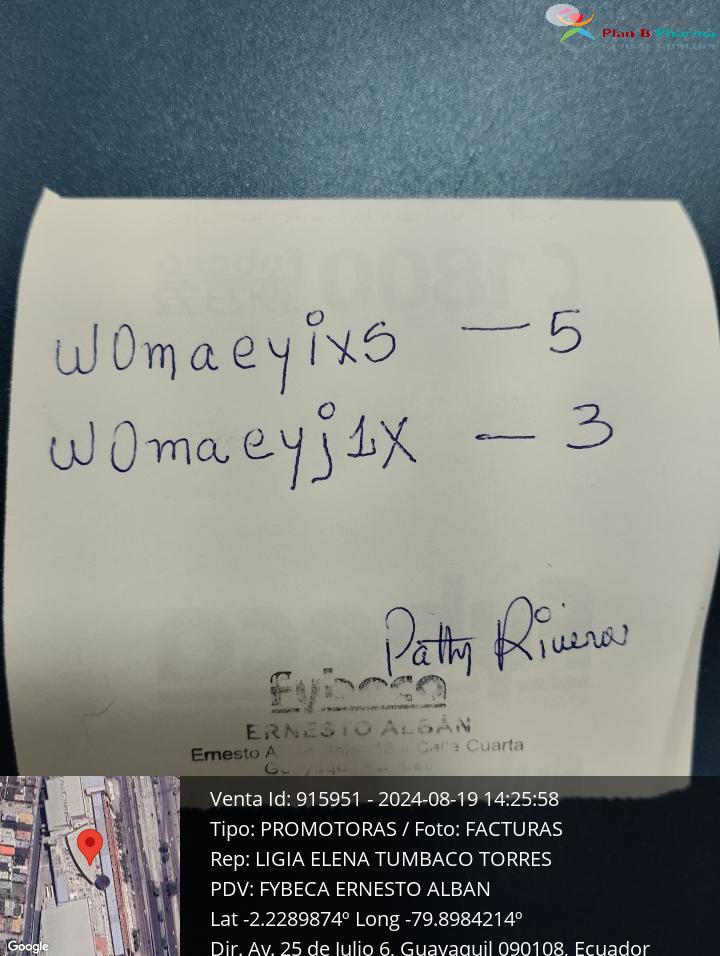 Plan B Pharma
w0maeyixs — 5
w0maeyj1x — 3
Patty Rivera
fybeca
ERNESTO ALBÁN
Ernesto A y Calle Cuarta
Venta Id: 915951 - 2024-08-19 14:25:58
Tipo: PROMOTORAS / Foto: FACTURAS
Rep: LIGIA ELENA TUMBACO TORRES
PDV: FYBECA ERNESTO ALBAN
Lat -2.2289874º Long -79.8984214º
Dir. Av. 25 de Julio 6, Guayaquil 090108, Ecuador
Google